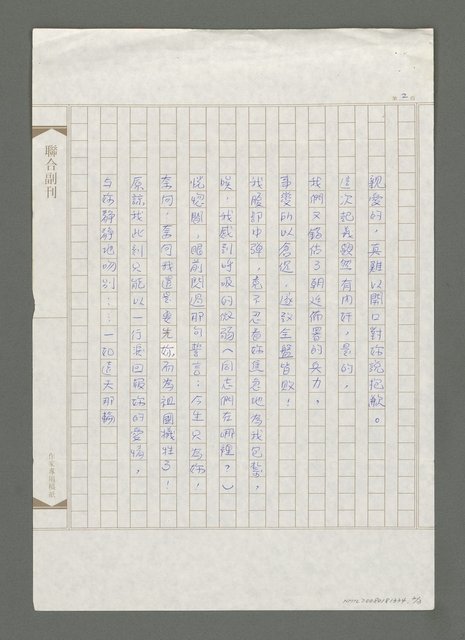 第2頁
親愛的,真難以開口對妳說抱歉。
這次起義顯然有內奸,是的,
我們又錯估了朝廷佈署的兵力,
事變所以倉促,遂致全盤皆敗!
我腹部中彈,竟不忍看妳焦急地為我包紮,
唉,我感到呼吸的微弱(同志們在哪裡?)
恍惚間,眼前閃過那句誓言:今生只為妳!
奈何,奈何我還是要先妳而為祖國犧牲了!
原諒我此刻只能以一行淚回報妳的愛情,
與妳靜靜地吻別……一如這天那輪
聯合副刊
作家專用稿紙